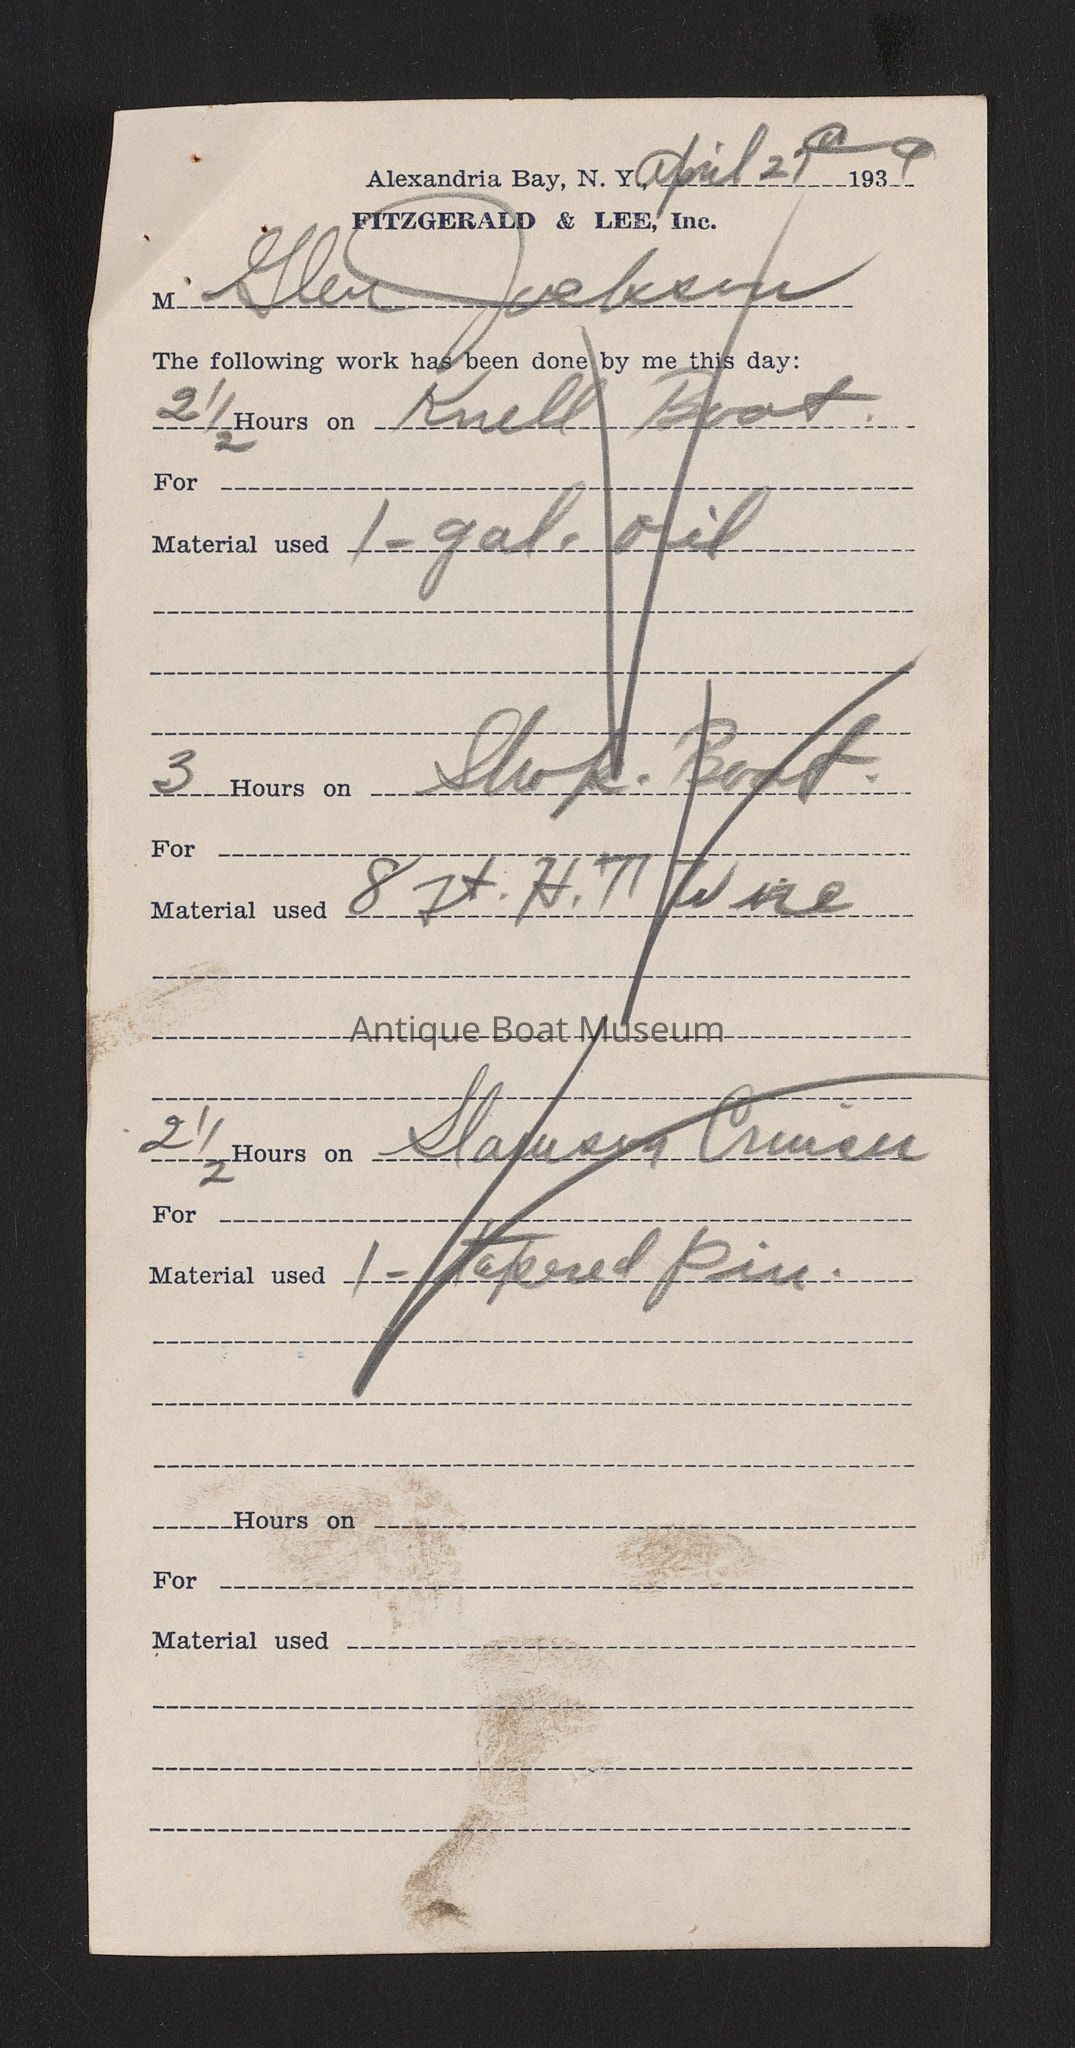 Alexandria Bay, N. Y., April 27 1939
FITZGERALD & LEE, Inc.
M Glen Jackson
The following work has been done by me this day:
2 1/2 Hours on Knell Boat.
For
Material used 1 - gal. oil
3 Hours on Shop. Boat.
For
Material used 8 ft. H. T. Wire
Antique Boat Museum
2 1/2 Hours on Slawson Cruiser
For
Material used 1 - tapered pin.
Hours on
For
Material used